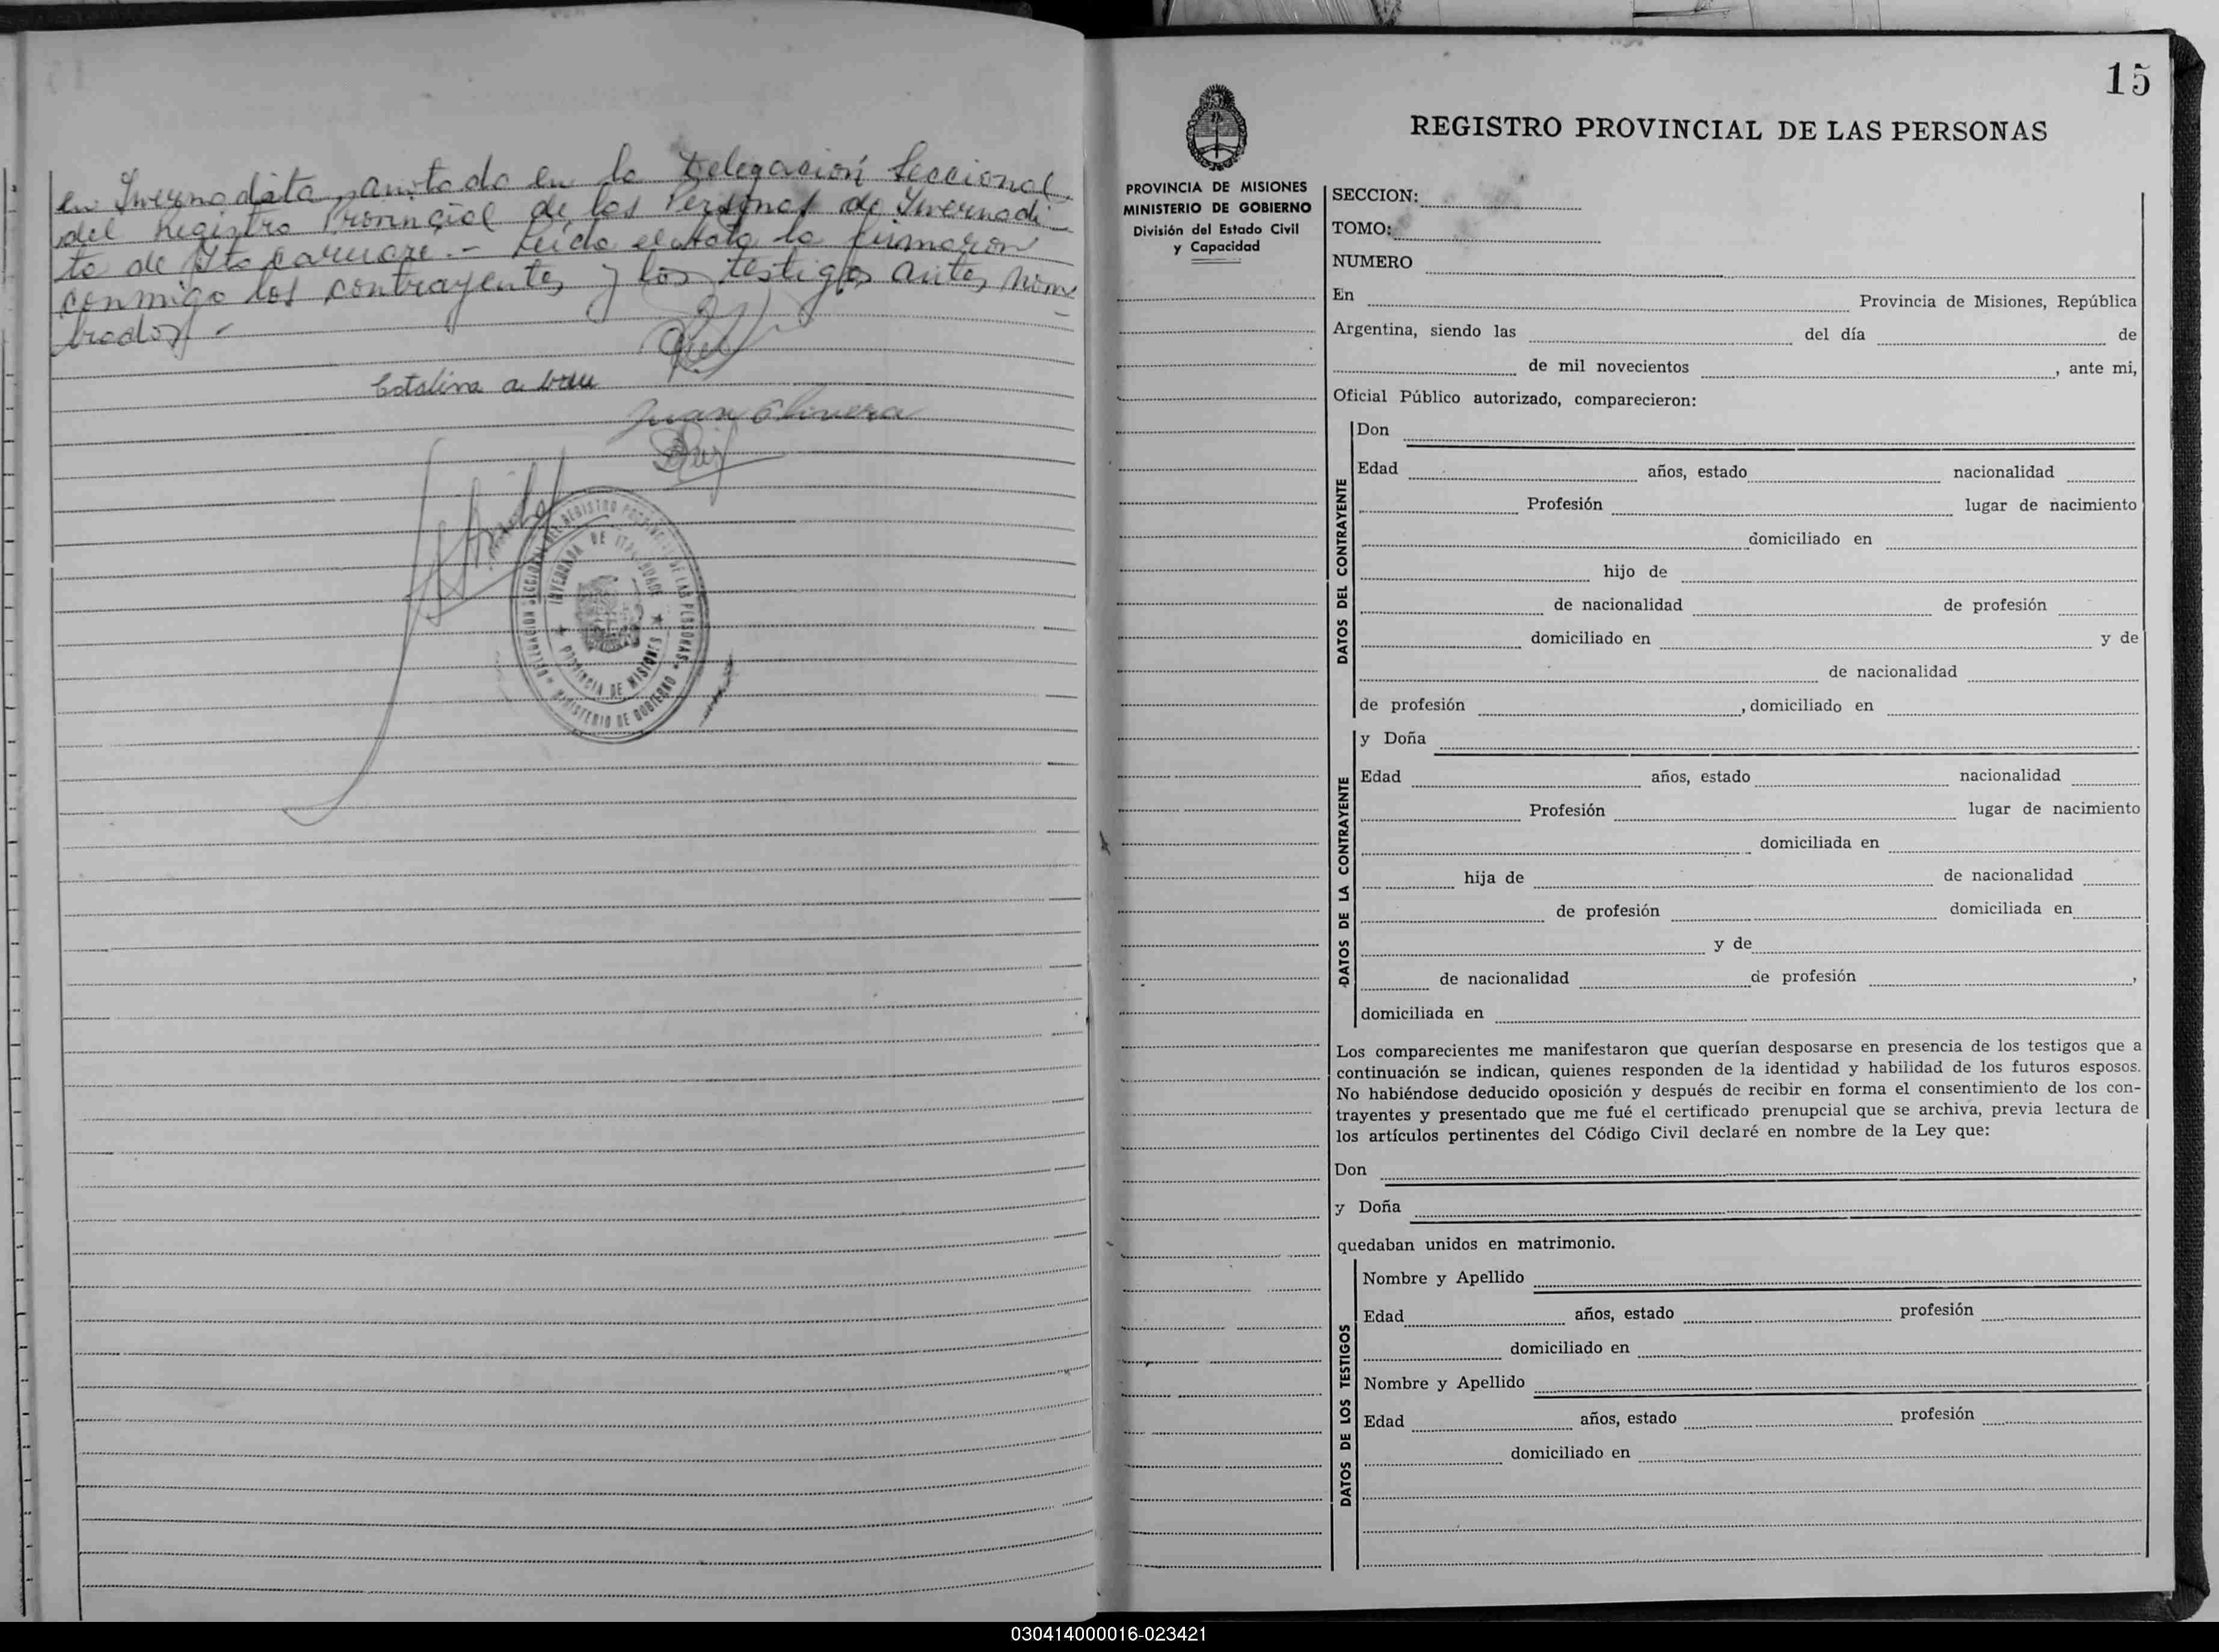 en Invernadita, anotado en la Delegación Seccional
del Registro Provincial de las Personas de Invernadi-
ta de Itacaruaré.- Leída el Acta la firmaron
conmigo los contrayentes y los testigos antes nom-
brados.-
Catalina a
Juan Olivera
DELEGACION SECCIONAL DEL REGISTRO PROVINCIAL DE LAS PERSONAS
MINISTERIO DE GOBIERNO
INVERNADA DE ITACARUARE
PROVINCIA DE MISIONES
15
REGISTRO PROVINCIAL DE LAS PERSONAS
PROVINCIA DE MISIONES
MINISTERIO DE GOBIERNO
División del Estado Civil
y Capacidad
SECCION:
TOMO:
NUMERO
En Provincia de Misiones, República
Argentina, siendo las del día de
de mil novecientos , ante mi,
Oficial Público autorizado, comparecieron:
DATOS DEL CONTRAYENTE
Don
Edad años, estado nacionalidad
Profesión lugar de nacimiento
domiciliado en
hijo de
de nacionalidad de profesión
domiciliado en y de
de nacionalidad
de profesión , domiciliado en
DATOS DE LA CONTRAYENTE
y Doña
Edad años, estado nacionalidad
Profesión lugar de nacimiento
domiciliada en
hija de de nacionalidad
de profesión domiciliada en
y de
de nacionalidad de profesión ,
domiciliada en
Los comparecientes me manifestaron que querían desposarse en presencia de los testigos que a
continuación se indican, quienes responden de la identidad y habilidad de los futuros esposos.
No habiéndose deducido oposición y después de recibir en forma el consentimiento de los con-
trayentes y presentado que me fué el certificado prenupcial que se archiva, previa lectura de
los artículos pertinentes del Código Civil declaré en nombre de la Ley que:
Don
y Doña
quedaban unidos en matrimonio.
DATOS DE LOS TESTIGOS
Nombre y Apellido
Edad años, estado profesión
domiciliado en
Nombre y Apellido
Edad años, estado profesión
domiciliado en
030414000016-023421